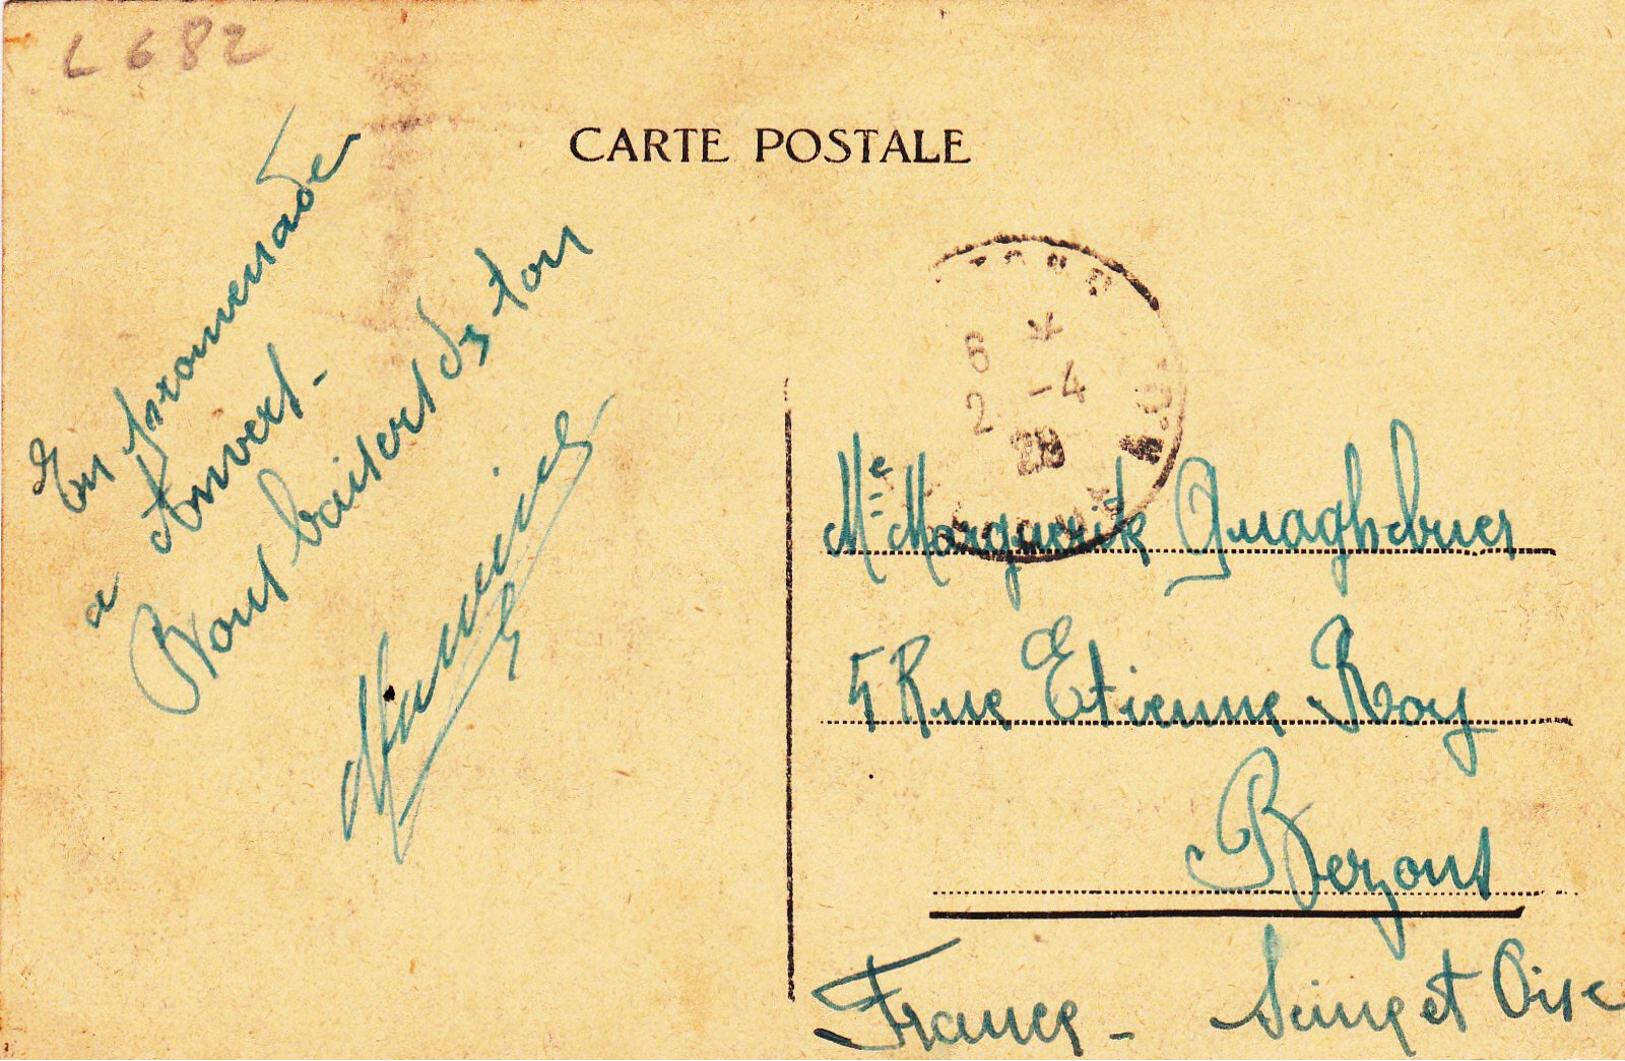 L 682
CARTE POSTALE
En promenade
a Anvert -
Bons baisert de ton
6 *
2 -4
28
Me Marguerite
5 Rue Etienne Roy
Bezons
France - Seine et Oise